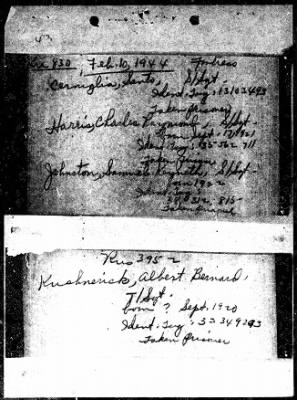 Feb. 10, 1944 Fortress
Cerniglia, Santo, S/Sgt -
Ident. Tag: 13102493
Taken prisoner
Harris, Charles Raymond, S/Sgt -
born Sept.
Ident. Tag: 35-562 711
Taken Prisoner
Johnston, Samuel Kenneth, S/Sgt -
born 1922
Ident. Tag:
815-
Taken prisoner
Kushnerick, Albert Bernard,
T/Sgt.
born ? Sept. 1920
Ident. Tag: 33349293
Taken Prisoner